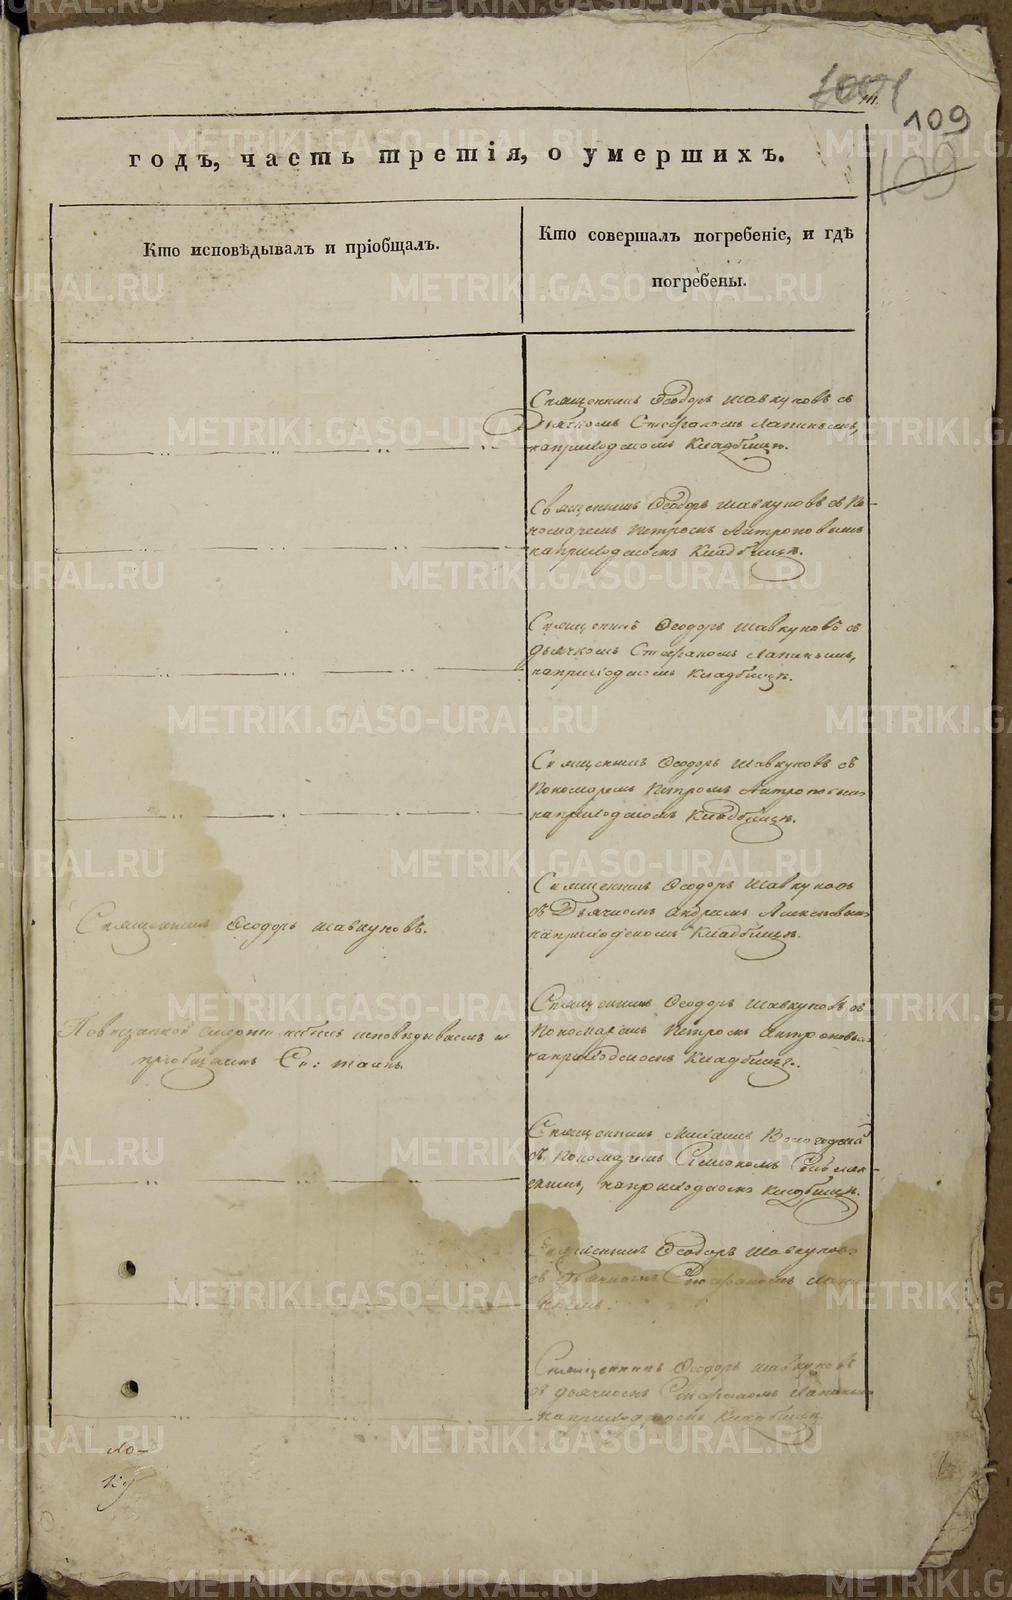 109
109
годъ, часть третія, о умершихъ.
Кто исповѣдывалъ и пріобщалъ.
Кто совершалъ погребеніе, и гдѣ
погребены.
Священникъ Ѳеодоръ Шавкуновъ съ
Дьячкомъ Стефаномъ Лапинымъ,
на приходскомъ Кладбищѣ.
Священникъ Ѳеодоръ Шавкуновъ съ По-
номаремъ Петромъ Антроповымъ
на приходскомъ Кладбищѣ.
Священникъ Ѳеодоръ Шавкуновъ съ
дьячкомъ Стефаномъ Лапинымъ,
на приходскомъ Кладбищѣ.
Священникъ Ѳеодоръ Шавкуновъ съ
Пономаремъ Петромъ Антроповымъ
на приходскомъ Кладбищѣ.
Священникъ Ѳеодоръ Шавкуновъ.
Священникъ Ѳеодоръ Шавкуновъ
съ Дьячкомъ
на приходскомъ Кладбищѣ.
По внезапной смерти небылъ исповѣдываемъ и
пріобщаемъ Св: таинъ.
Священникъ Ѳеодоръ Шавкуновъ съ
Пономаремъ Петромъ Антроповымъ
на приходскомъ Кладбищѣ.
Священникъ
съ Пономаремъ
на приходскомъ кладбищѣ.
Священникъ Ѳеодоръ Шавкуновъ
съ Дьячкомъ Стефаномъ Лапи-
нымъ.
Священникъ Ѳеодоръ Шавкуновъ
съ дьячкомъ Стефаномъ Лапинымъ
на приходскомъ Кладбищѣ.
METRIKI.GASO-URAL.RU